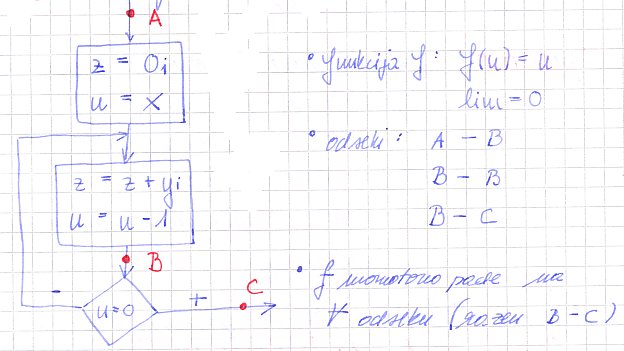 A
z = 0;
u = x
z = z + y;
u = u - 1
B
-
u=0
+
C
• funkcija f: f(u) = u
lim = 0
• odseki: A - B
B - B
B - C
• f monotono pada na
∀ odseku (razen B-C)